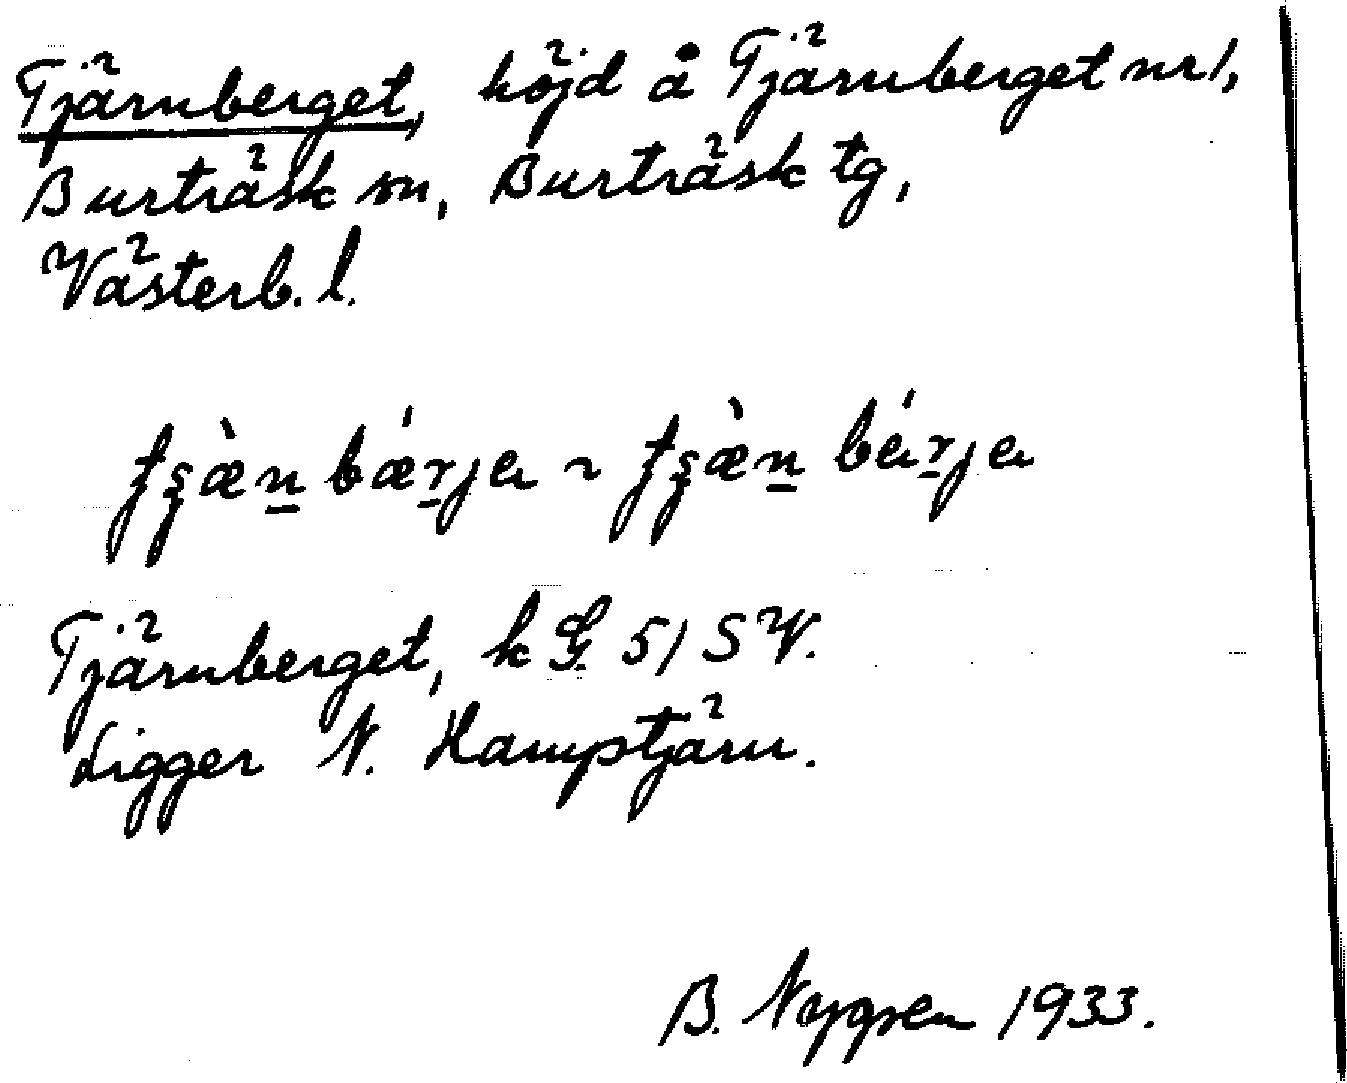 Tjärnberget, höjd å Tjärnberget nr 1,
Burträsk sn, Burträsk tg,
Västerb. l.
Tjärnberget, k G. 51 SV.
Ligger N. Kamptjärn.
B. Nygren 1933.